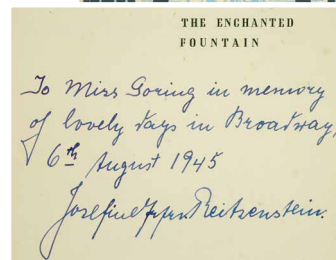 THE ENCHANTED
FOUNTAIN
To Miss Goring in memory
of lovely days in Broadway,
6th August 1945
Reitzenstein.